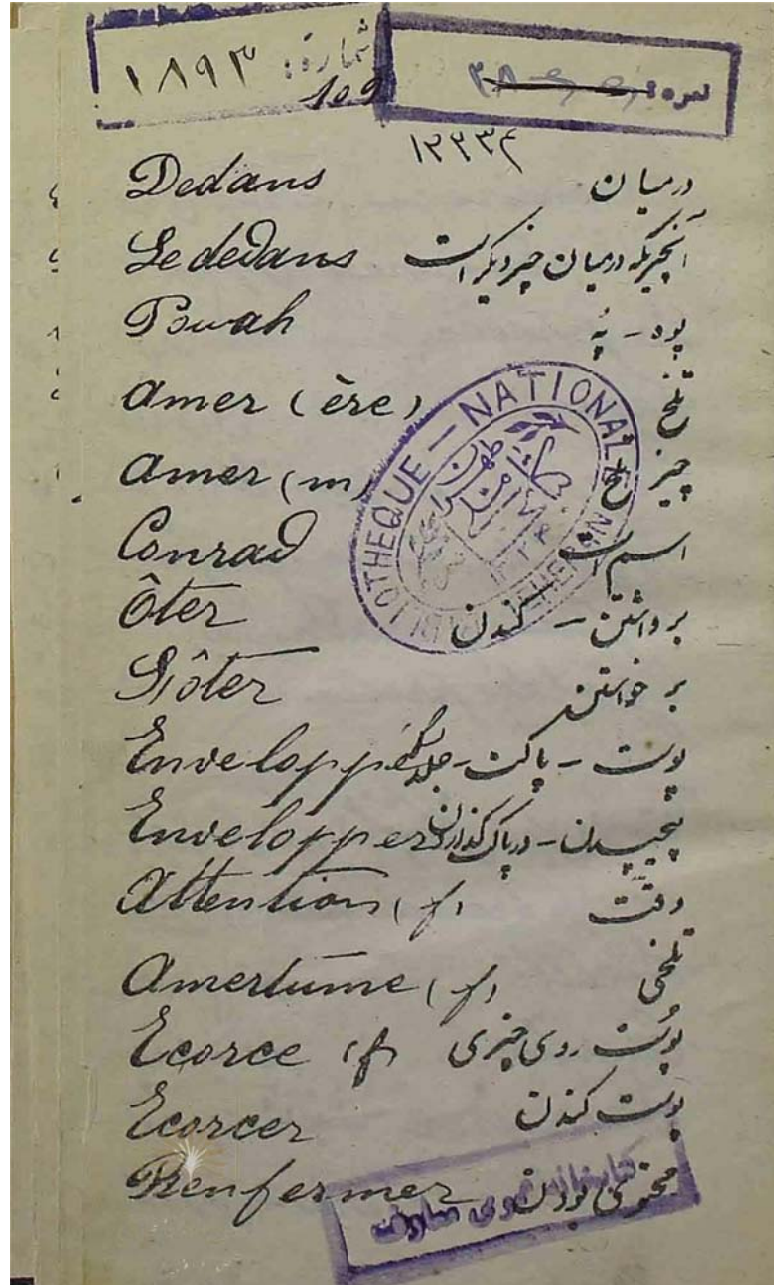 شماره: ۱۸۹۳
109
نمره:
۱۲۳۳۴
Dedans درمیان
Le dedans آنچیزیکه درمیان چیز دیگر است
Pouah پوه - پُه
Amer (ère) تلخ
Amer (m) چیز تلخ
Conrad اسم است
Ôter برداشتن - کندن
S'ôter برخواستن
Enveloppe پوست - پاکت - جلد
Envelopper پیچیدن - درپاکت گذاردن
Attention (f) دقت
Amertume (f) تلخی
Ecorce (f) پوست روی چیزی
Ecorcer پوست کندن
Renfermer بودن
BIBLIOTHEQUE - NATIONAL
TEHERAN